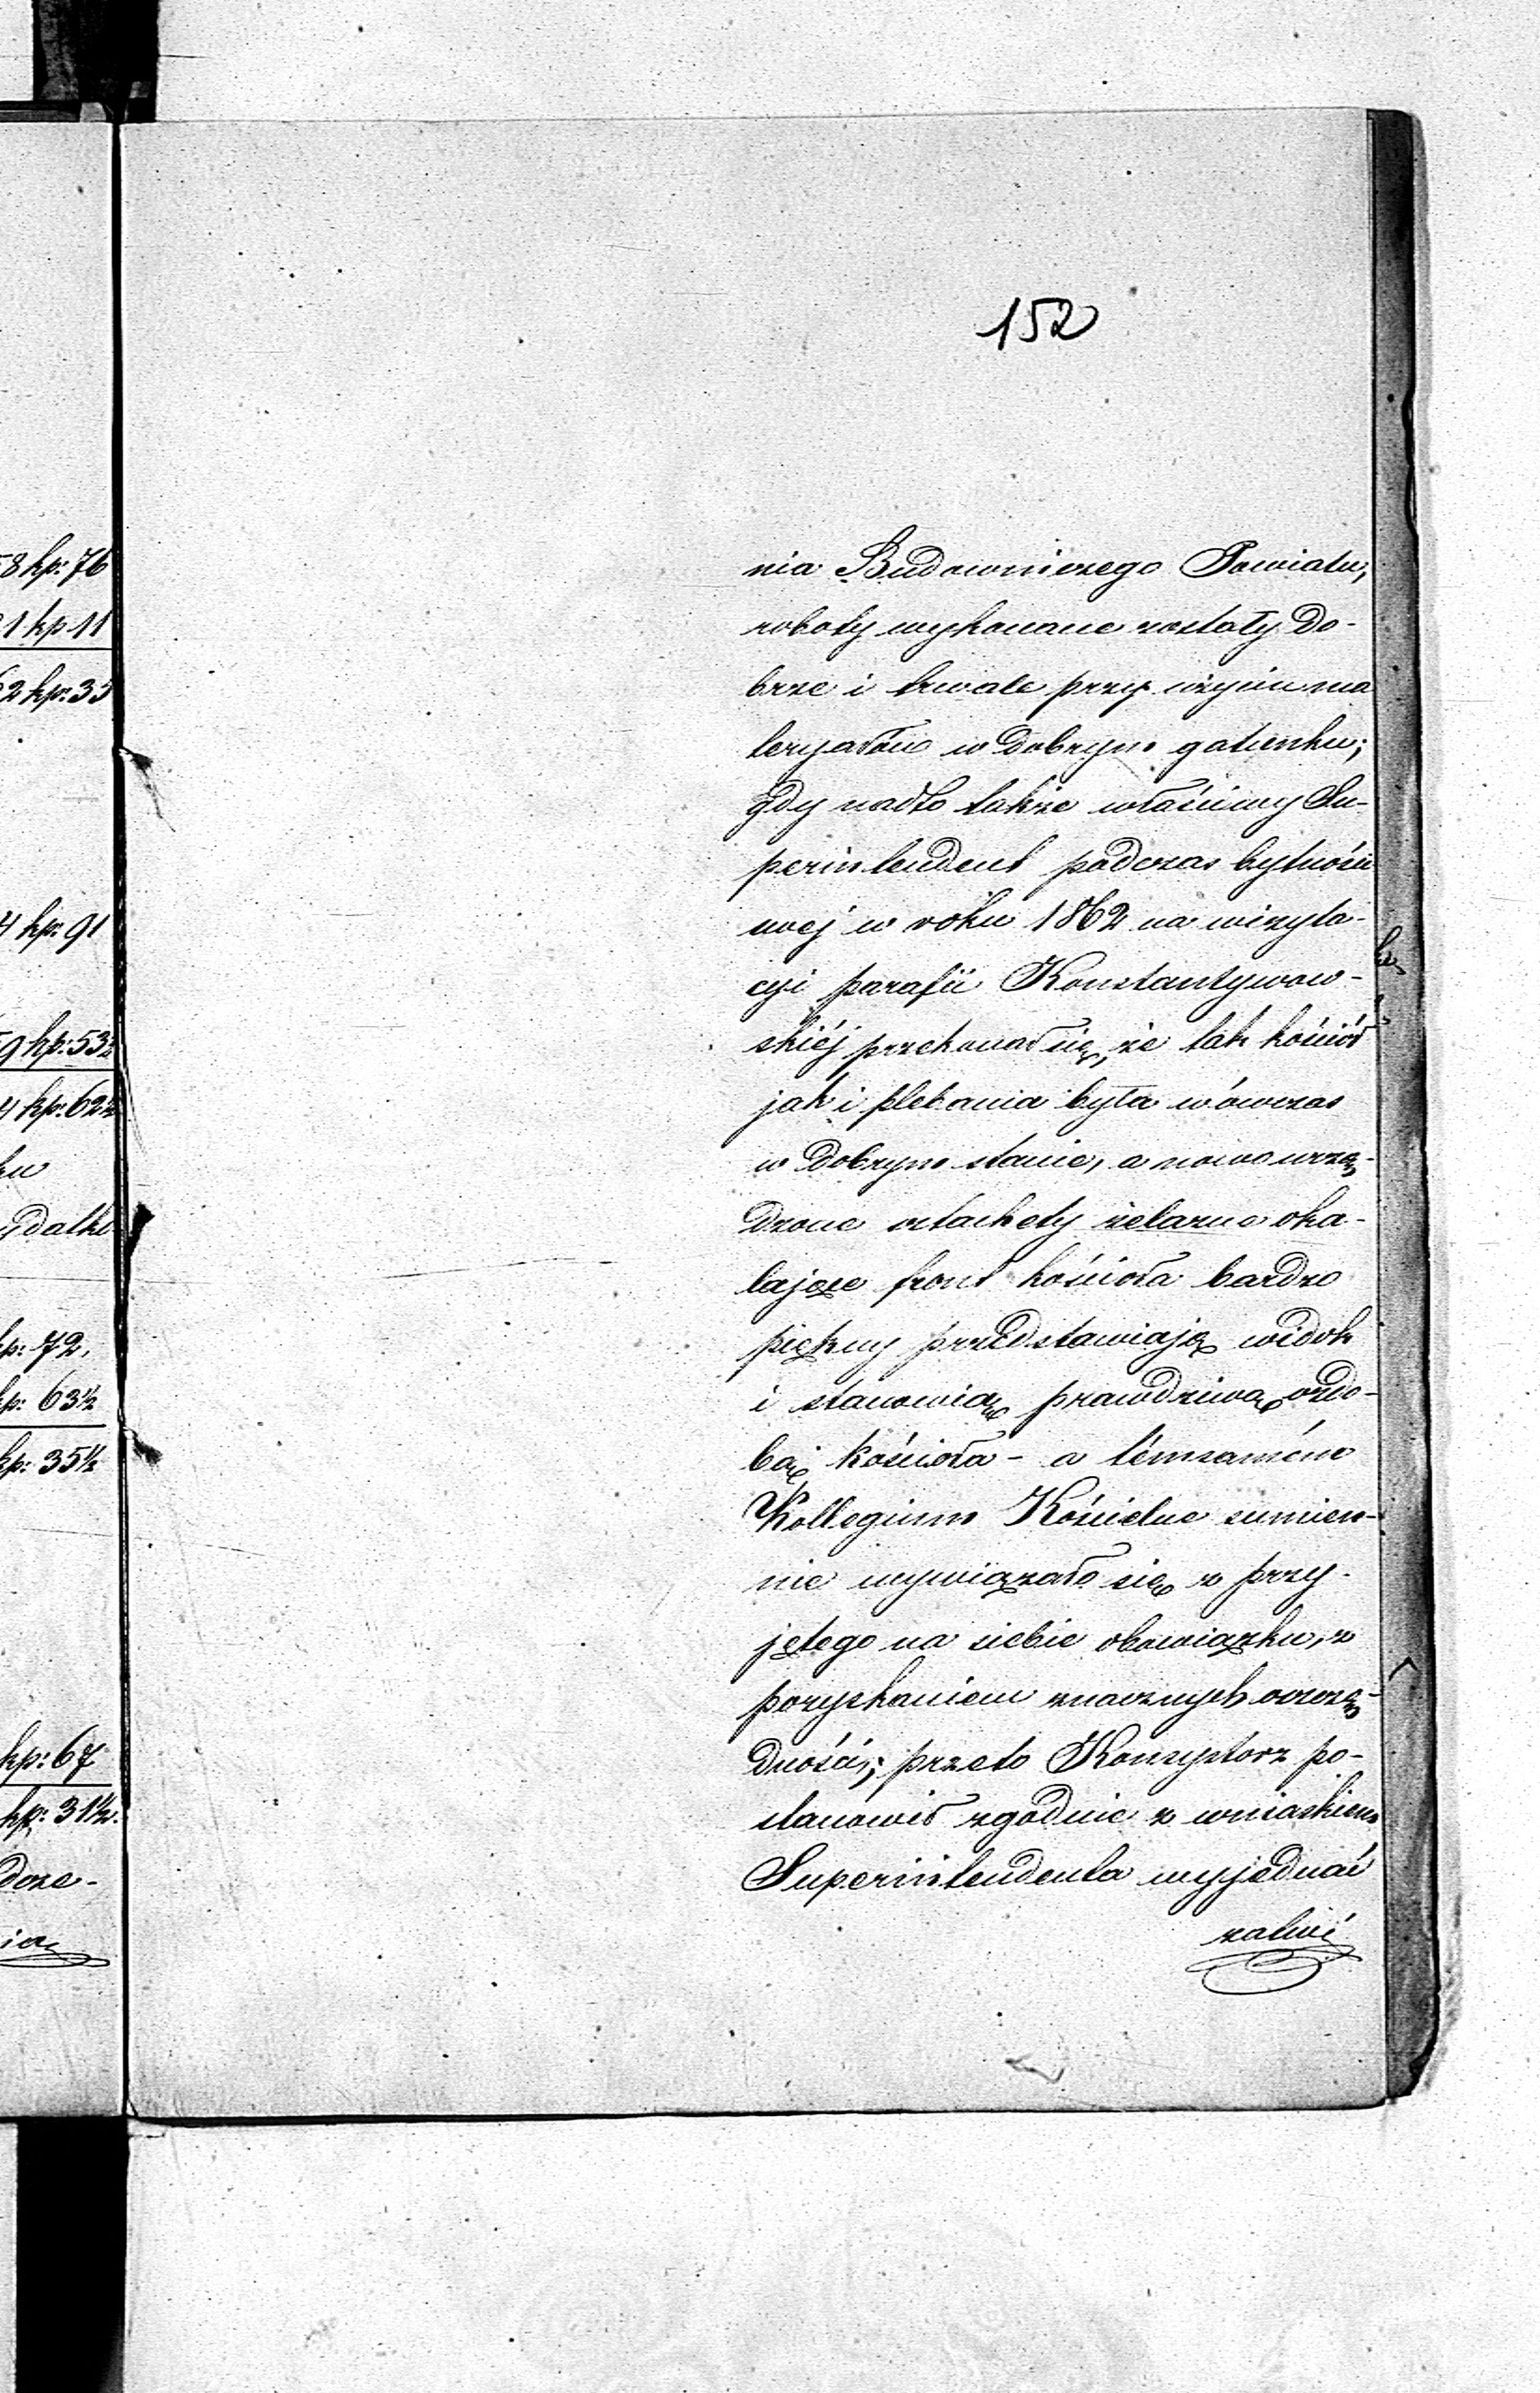 152
58 kp: 76
1 kp 11
62 kp: 35
4 kp: 91
59 kp: 53½
4 kp: 62½
ku
ydatki
kp: 72,
kp: 63½
kp: 35½
kp: 67
kp: 31½.
doze-
nia Budowniczego Powiatu,
roboty wykonane zostały do-
brze i trwale przy użyciu ma
teryałów w dobrym gatunku;
gdy nadto także właściwy Su-
perintendent podczas bytności
swej w roku 1862 na wizyta-
cyi parafii Konstantynow-
skiéj przekonał się, że tak kościół
jak i plebania była wówczas
w dobrym stanie, a nowo urzą-
dzone sztachety żelazne oka-
lające front kościoła bardzo
piękny przedstawiają widok
i stanowią prawdziwą ozdo-
bę kościoła - a témsamém
Kollegium Kościelne sumien-
nie wywiązało się z przy-
jętego na siebie obowiązku, z
pozyskaniem znacznych oszczę-
dności; przeto Konsystorz po-
stanowił zgodnie z wnioskiem
Superintendenta wyjednać